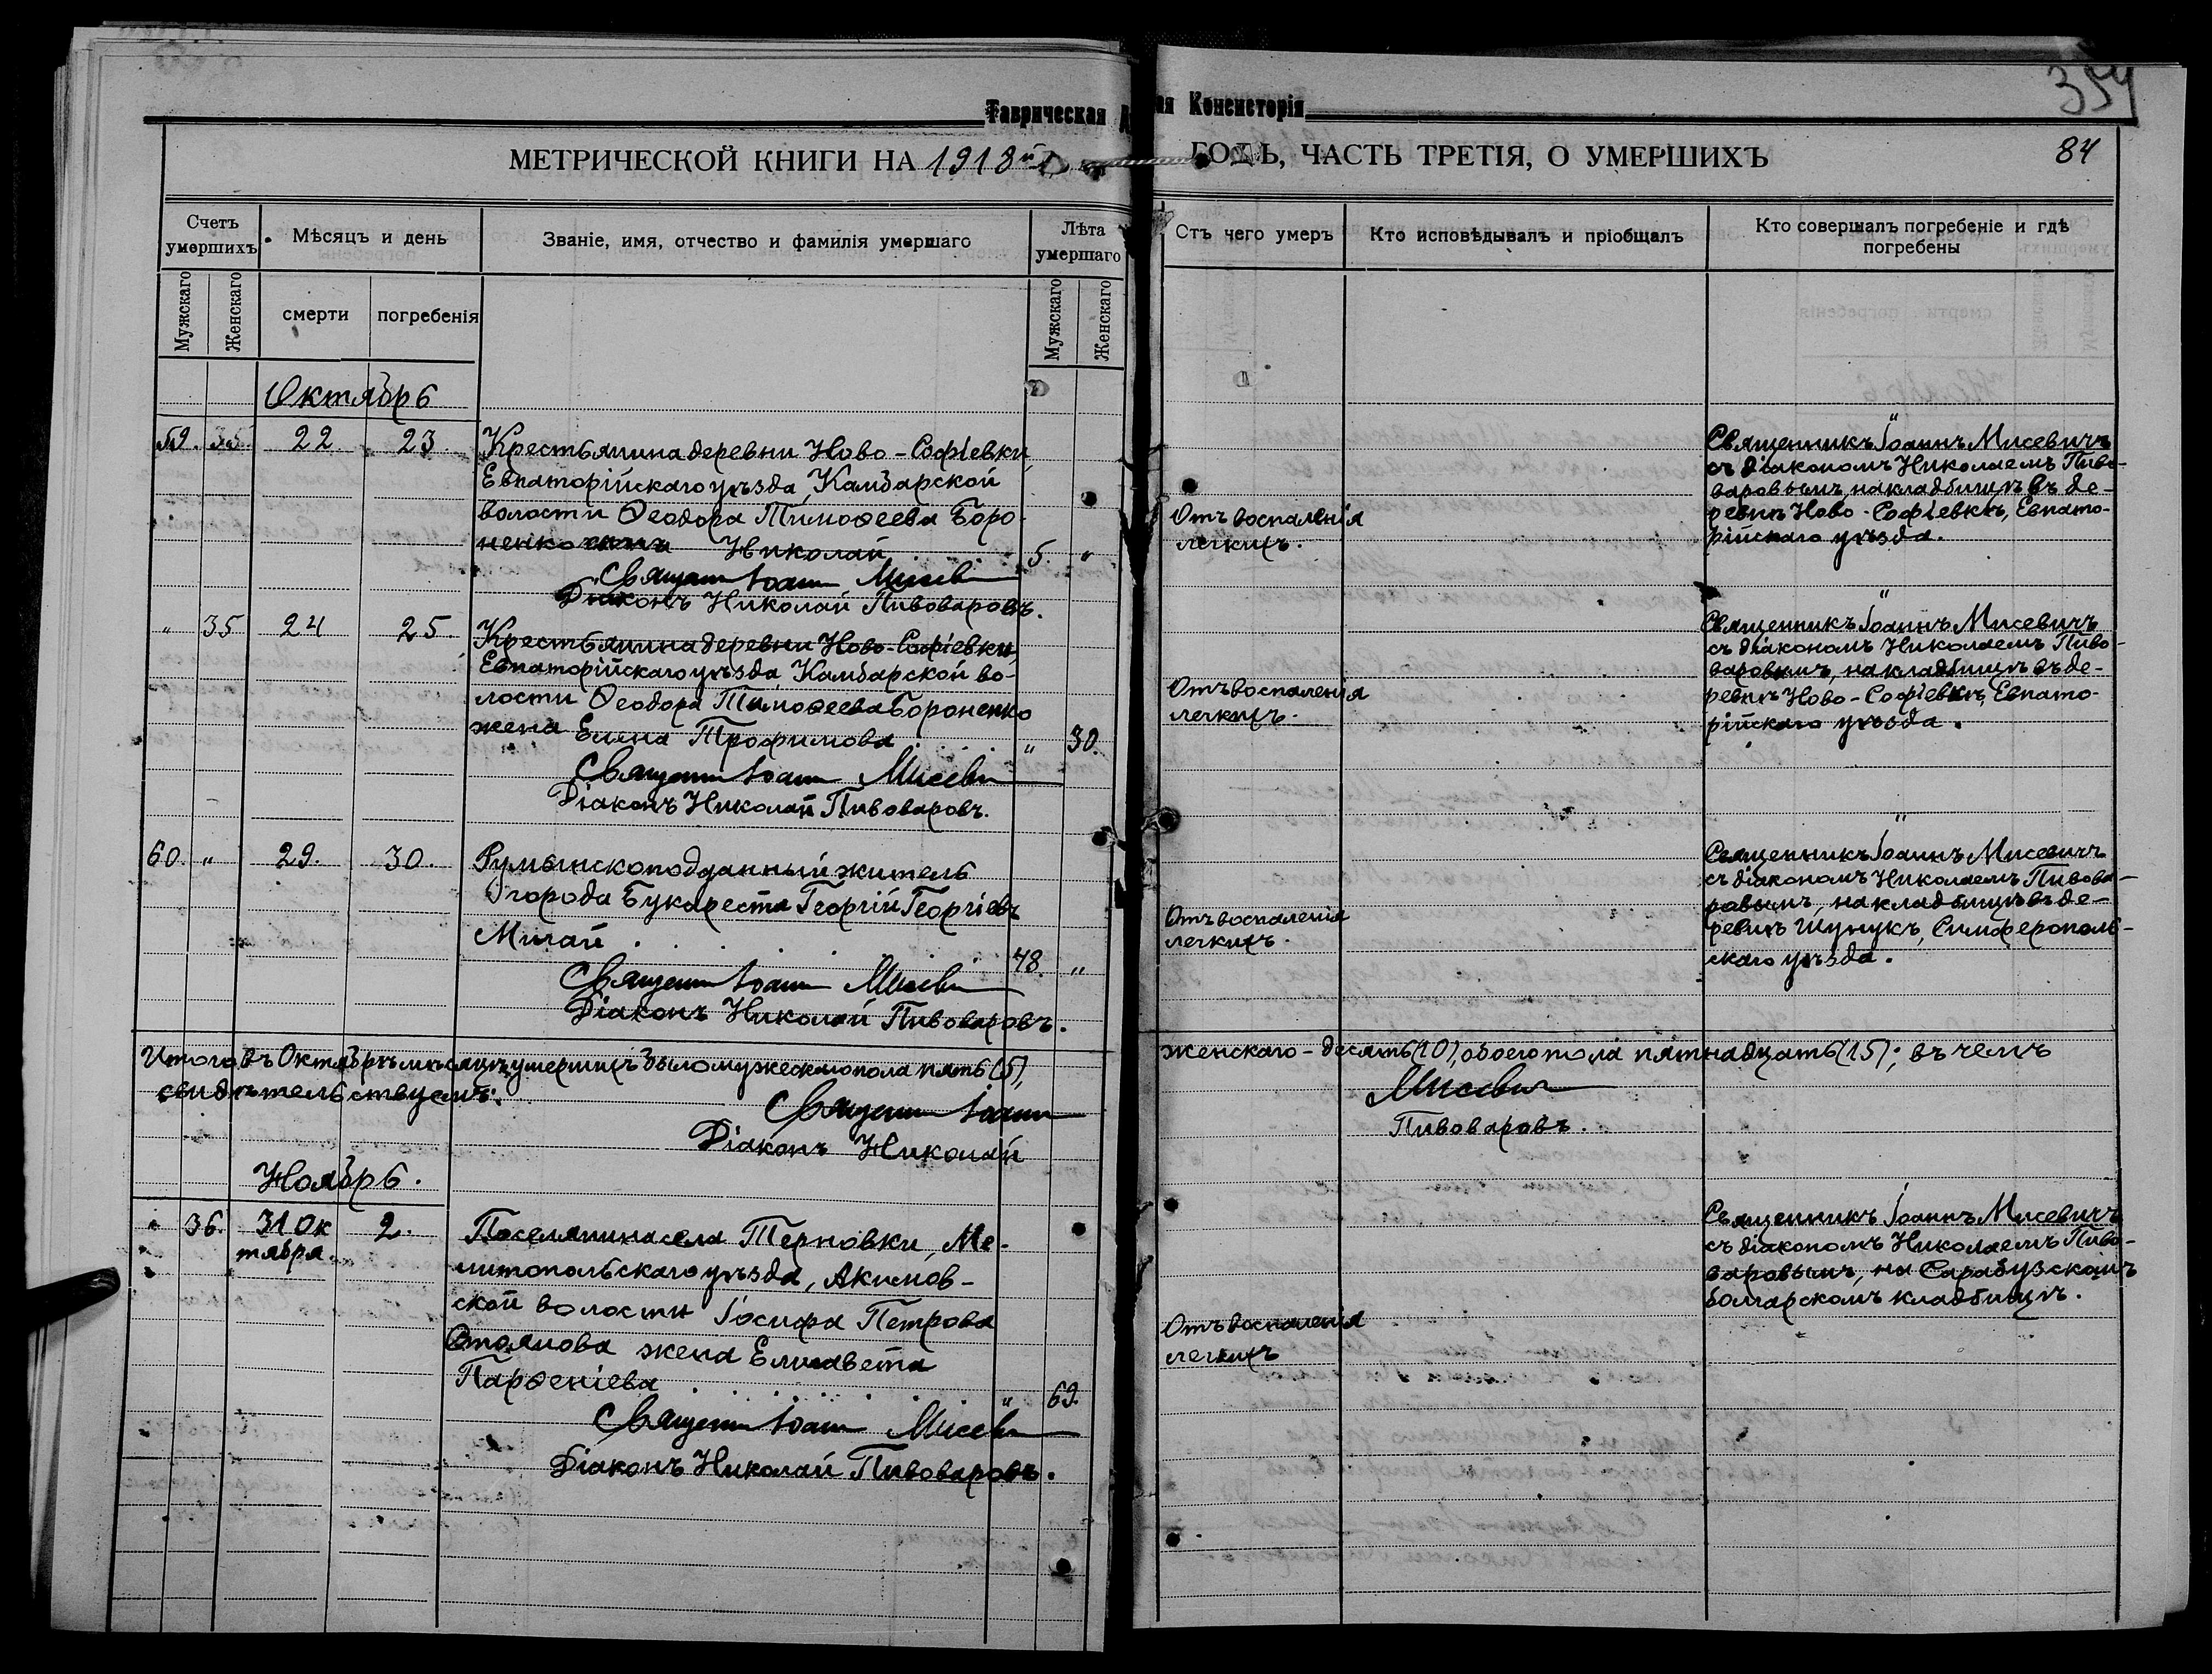 354
Таврическая Д ая Консисторія
МЕТРИЧЕСКОЙ КНИГИ НА 1918й ГОДЪ, ЧАСТЬ ТРЕТІЯ, О УМЕРШИХЪ 84
Счетъ умершихъ
Мѣсяцъ и день
Званіе, имя, отчество и фамилія умершаго
Лѣта умершаго
Мужскаго
Женскаго
смерти
погребенія
Мужскаго
Женскаго
Отъ чего умеръ
Кто исповѣдывалъ и пріобщалъ
Кто совершалъ погребеніе и гдѣ
погребены
Октябрь
59. 22 23
Крестьянина деревни Ново-Софіевки,
Евпаторійскаго уѣзда, Камбарской
волости Ѳеодора Тимоѳеева Боро-
ненко сынъ Николай 5. "
Священ Іоанн Мисевич
Діаконъ Николай Пивоваровъ.
Отъ воспаленія
легкихъ.
"
Священникъ Іоаннъ Мисевичъ
съ діакономъ Николаемъ Пиво-
варовымъ, на кладбищѣ въ де-
ревнѣ Ново-Софіевкѣ, Евпато-
рійскаго уѣзда.
" 35 24 25
Крестьянина деревни Ново-Софіевки,
Евпаторійскаго уѣзда, Камбарской во-
лости Ѳеодора Тимоѳеева Бороненко
жена Елена Трофимова " 30.
Священ Іоанн Мисевич
Діаконъ Николай Пивоваровъ.
Отъ воспаленія
легкихъ.
"
Священникъ Іоаннъ Мисевичъ
съ діакономъ Николаемъ Пиво-
варовымъ, на кладбищѣ въ де-
ревнѣ Ново-Софіевкѣ, Евпато-
рійскаго уѣзда.
60. " 29. 30.
Румынскоподданный житель
города Букареста Георгій Георгіевъ
Михай 48. "
Священ Іоанн Мисевич
Діаконъ Николай Пивоваровъ.
Отъ воспаленія
легкихъ.
"
Священникъ Іоаннъ Мисевичъ
съ діакономъ Николаемъ Пивова-
ровымъ, на кладбищѣ въ де-
ревнѣ Шунукъ, Симферополь-
скаго уѣзда.
Итого въ Октябрѣ мѣсяцѣ умершихъ было мужескаго пола пять (5), женскаго - десять (10), обоего пола пятнадцать (15); въ чемъ
свидѣтельствуемъ:
Священ Іоанн Мисевич
Діаконъ Николай Пивоваровъ.
Ноябрь.
" 36. 31 Ок 2.
тября.
Поселянина села Терновки, Ме-
литопольскаго уѣзда, Акимов-
ской волости Іосифа Петрова
Стоянова жена Елисавета
Парѳеніева " 69.
Священ Іоанн Мисевич
Діаконъ Николай Пивоваровъ.
Отъ воспаленія
легкихъ
Священникъ Іоаннъ Мисевичъ
съ діакономъ Николаемъ Пиво-
варовымъ, на Сарабузскомъ
болгарскомъ кладбищѣ.